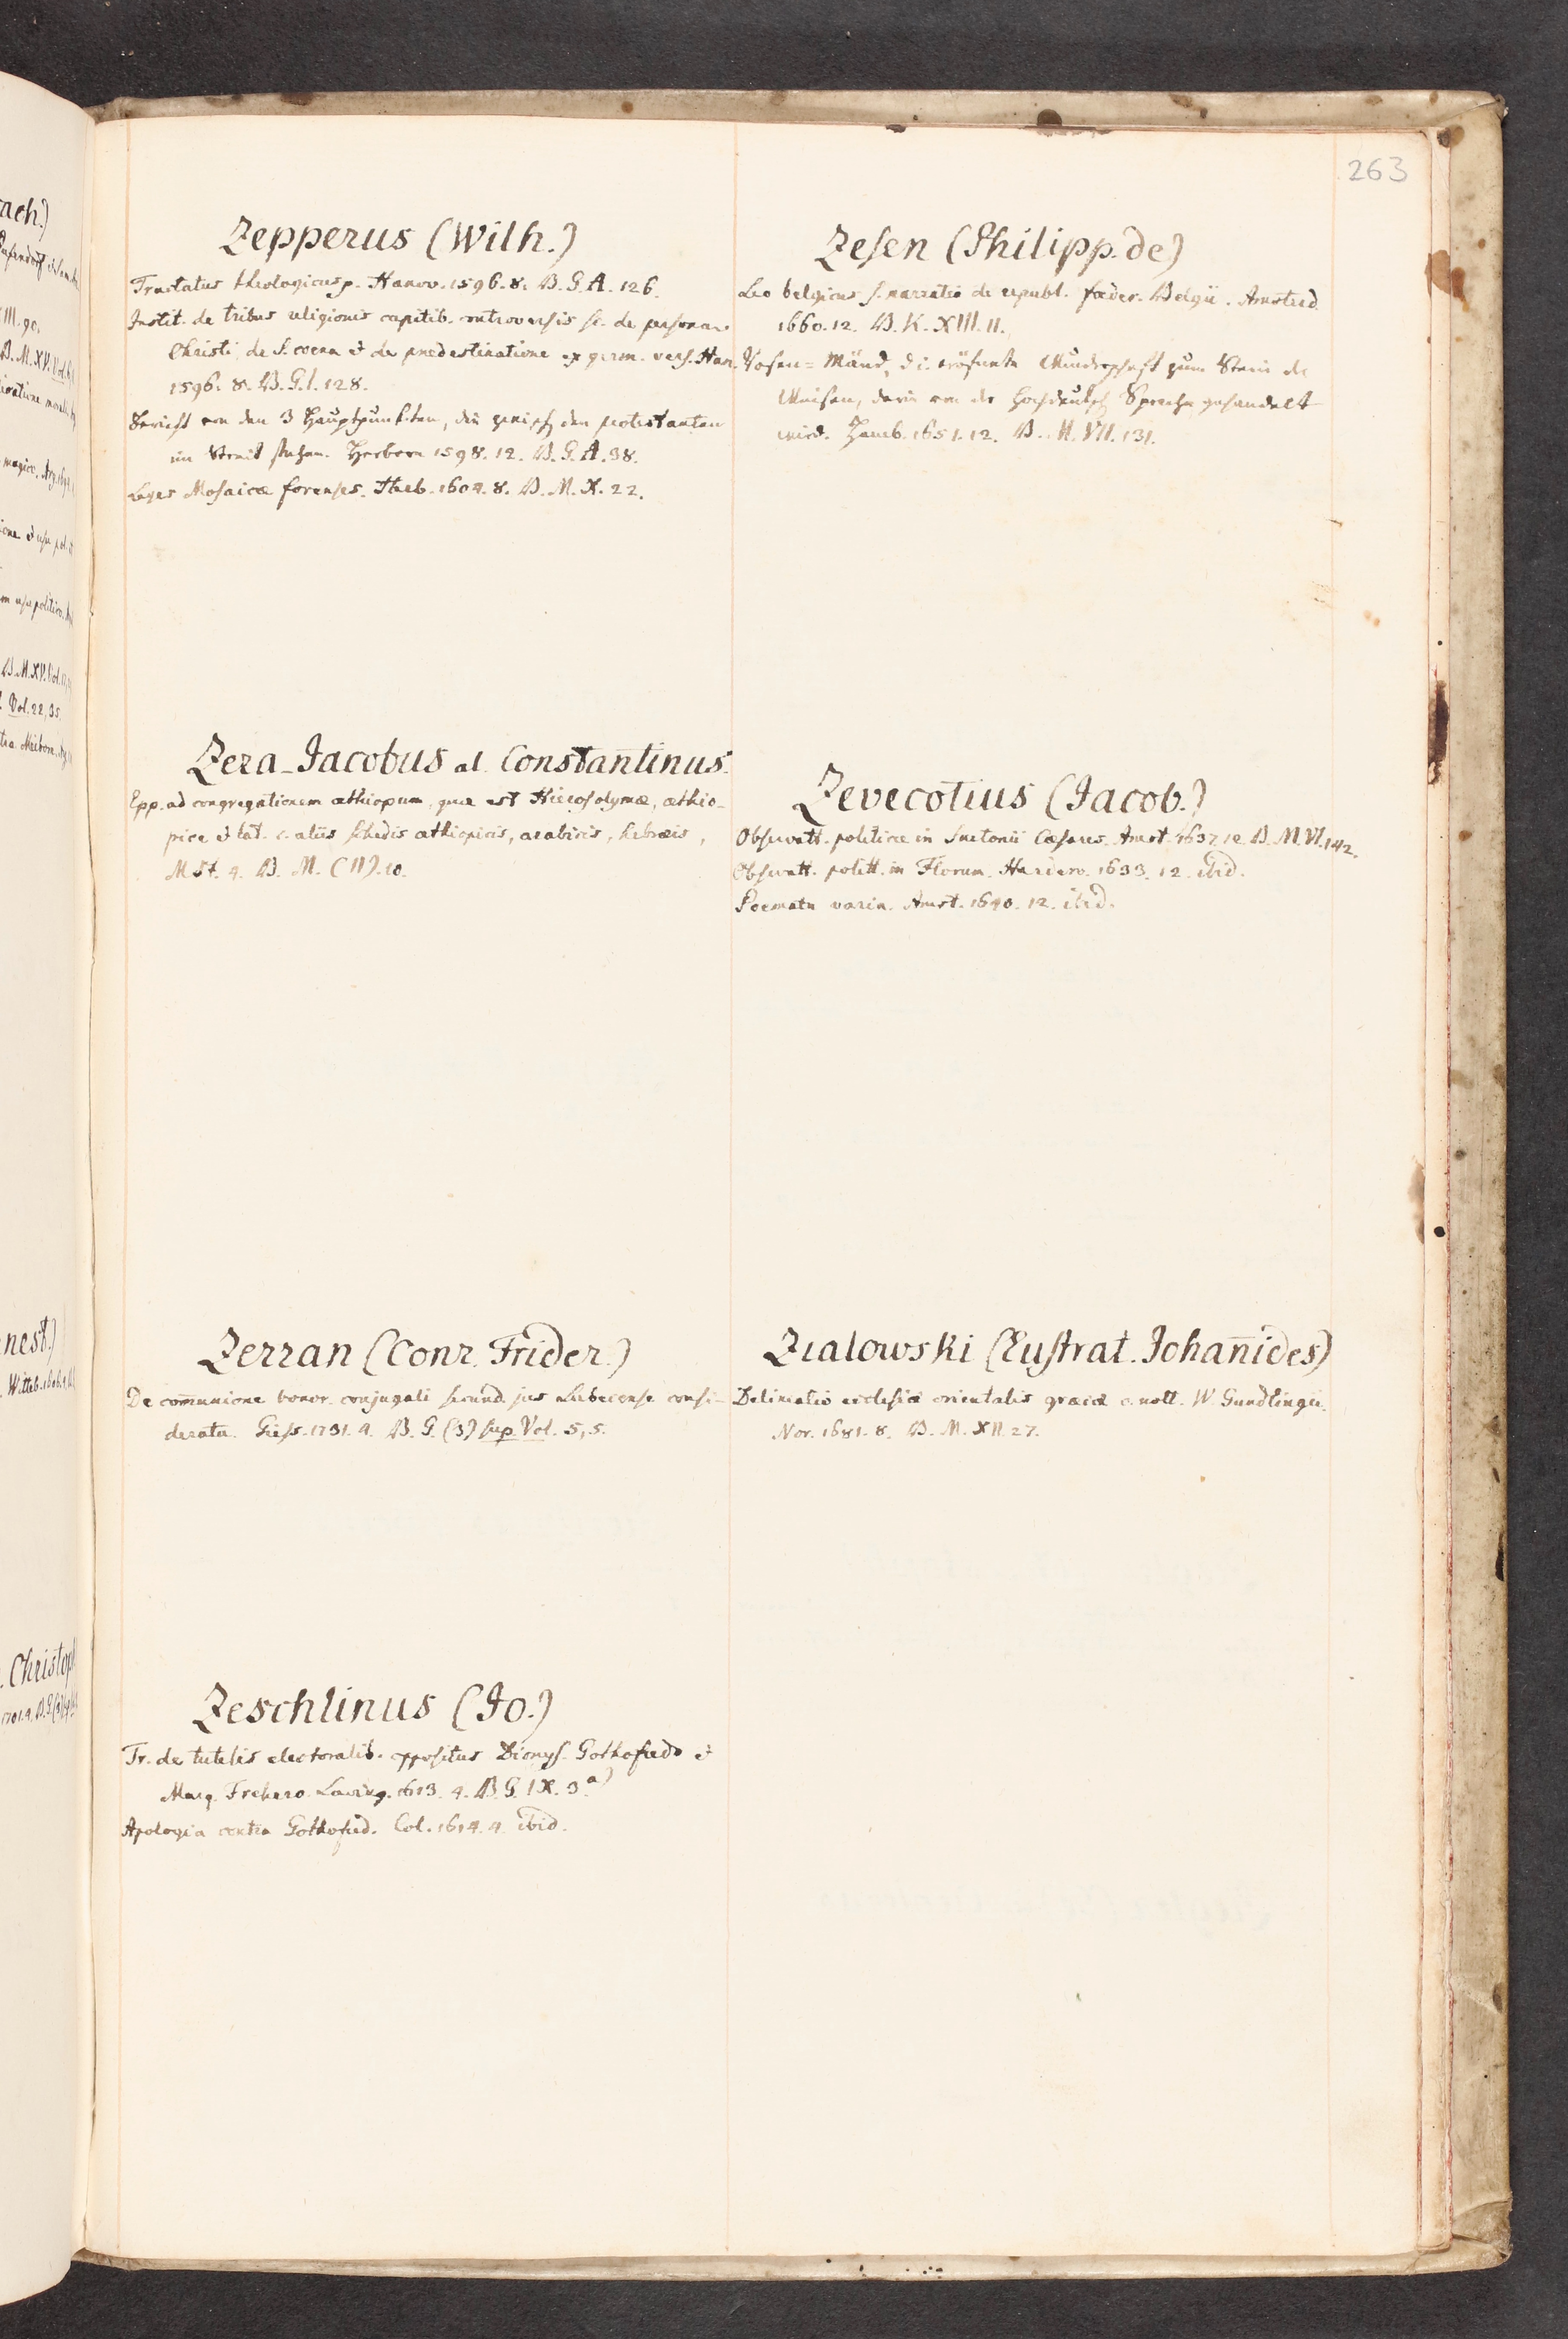 263
Zepperus (Wilh.)
Tractatus theologicus p. Hanov. 1596. 8. B. G. A. 126.
Instit. de tribus religionis capitib. controversis sc. de persona
Christi, de S. coena et de praedestinatione ex germ. vers. Han.
1596. 8. B. G. I. 128.
Bericht von den 3 Hauptpunkten, die zwisch. den protestanten
im Streit stehen. Herborn 1598. 12. B. G. A. 38.
Leges Mosaicæ forenses. Herb. 1604. 8. B. M. X. 22.
Zera-Jacobus al. Constantinus.
Epp. ad congregationem æthiopum, quæ est Hierosolymæ, æthio-
pice et lat. c. aliis schedis æthiopicis, arabicis, hebræis,
MSt. 4. B. M. (II). 10.
Zerran (Conr. Frider.)
De com̄unione bonor. conjugali secund. jus Lubecense consi-
derata. Giess. 1731. 4. B. G. (3) sup. Vol. 5, 5.
Zeschlinus (Jo.)
Tr. de tutelis electoralib. oppositus Dionys. Gothofredo et
Marq. Frehero. Lauing. 1613. 4. B. G. IX. 3.a)
Apologia contra Gothofred. Col. 1614. 4. ibid.
Zesen (Philipp. de)
Leo belgicus s. narratio de republ. fœder. Belgii. Amstend.
1660. 12. B. K. XIII. 11.
Rosen=Mând, d. i. eröfnete Wunderschaft zum Stein der
Weisen, darin von der Hochdeutsch. Sprache gehandelt
wird. Hamb. 1651. 12. B. M. VII. 131.
Zevecotius (Jacob.)
Observatt. politicæ in Suetonii Cæsares. Amst. 1637. 12. B. M. VI. 142.
Observatt. politt. in Florum. Harderv. 1633. 12. ibid.
Poemata varia. Amst. 1640. 12. ibid.
Zialowski (Eustrat. Johan̄ides)
Delineatio ecclesiæ orientalis græcæ c. nott. W. Gundlingii.
Nor. 1681. 8. B. M. XII. 27.